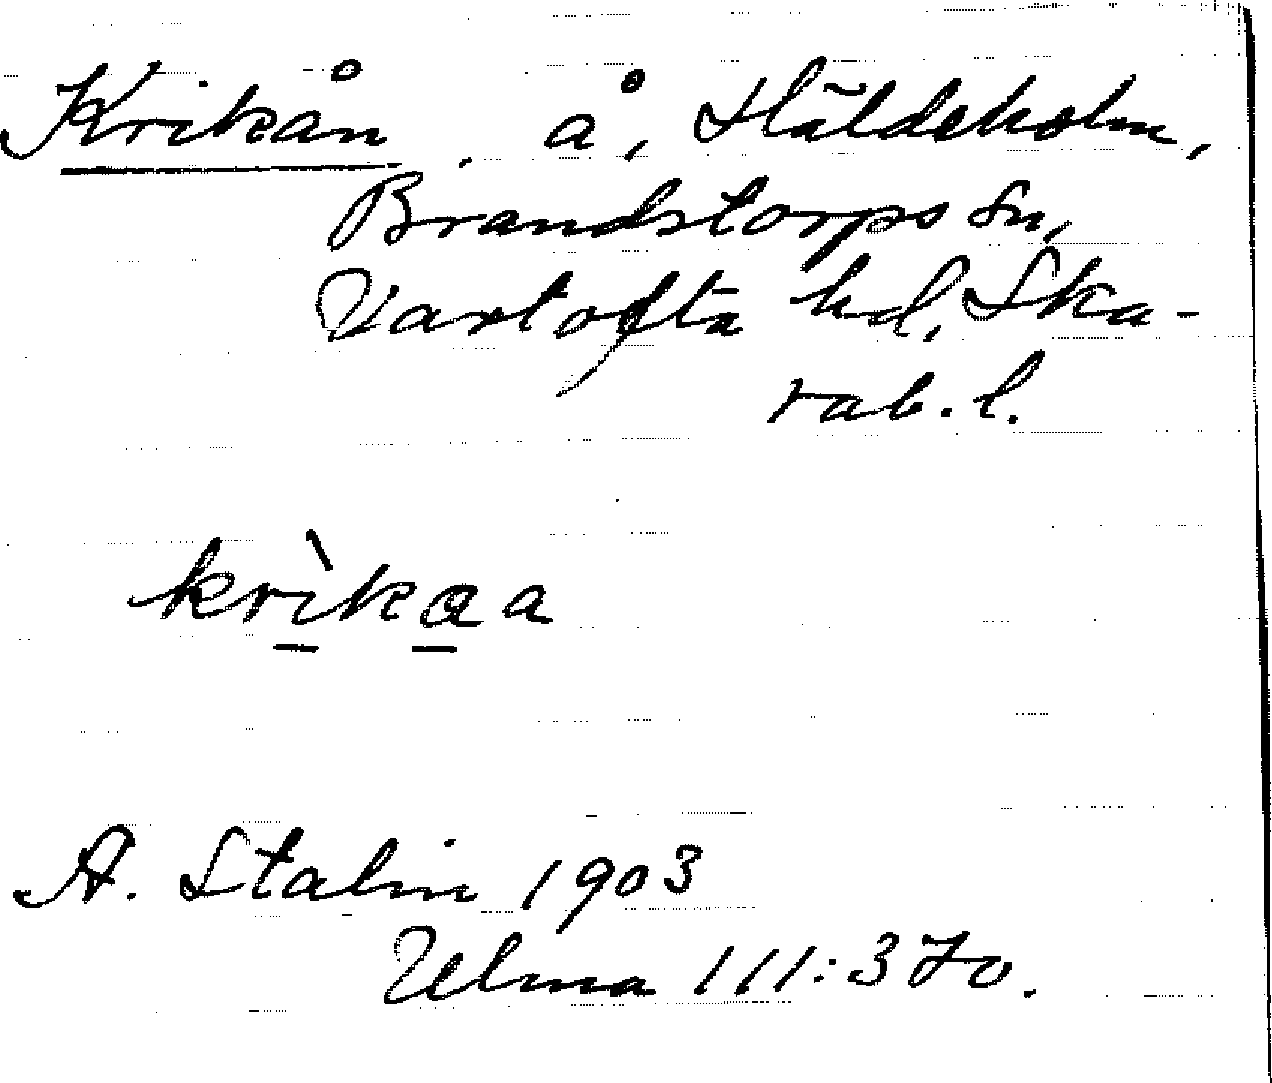 Krikån . å, Häldeholm,
Brandstorps sn,
Vartofta hd, Ska-
rab. l.
krìkaa
A. Stalin 1903
Ulma 111:370.